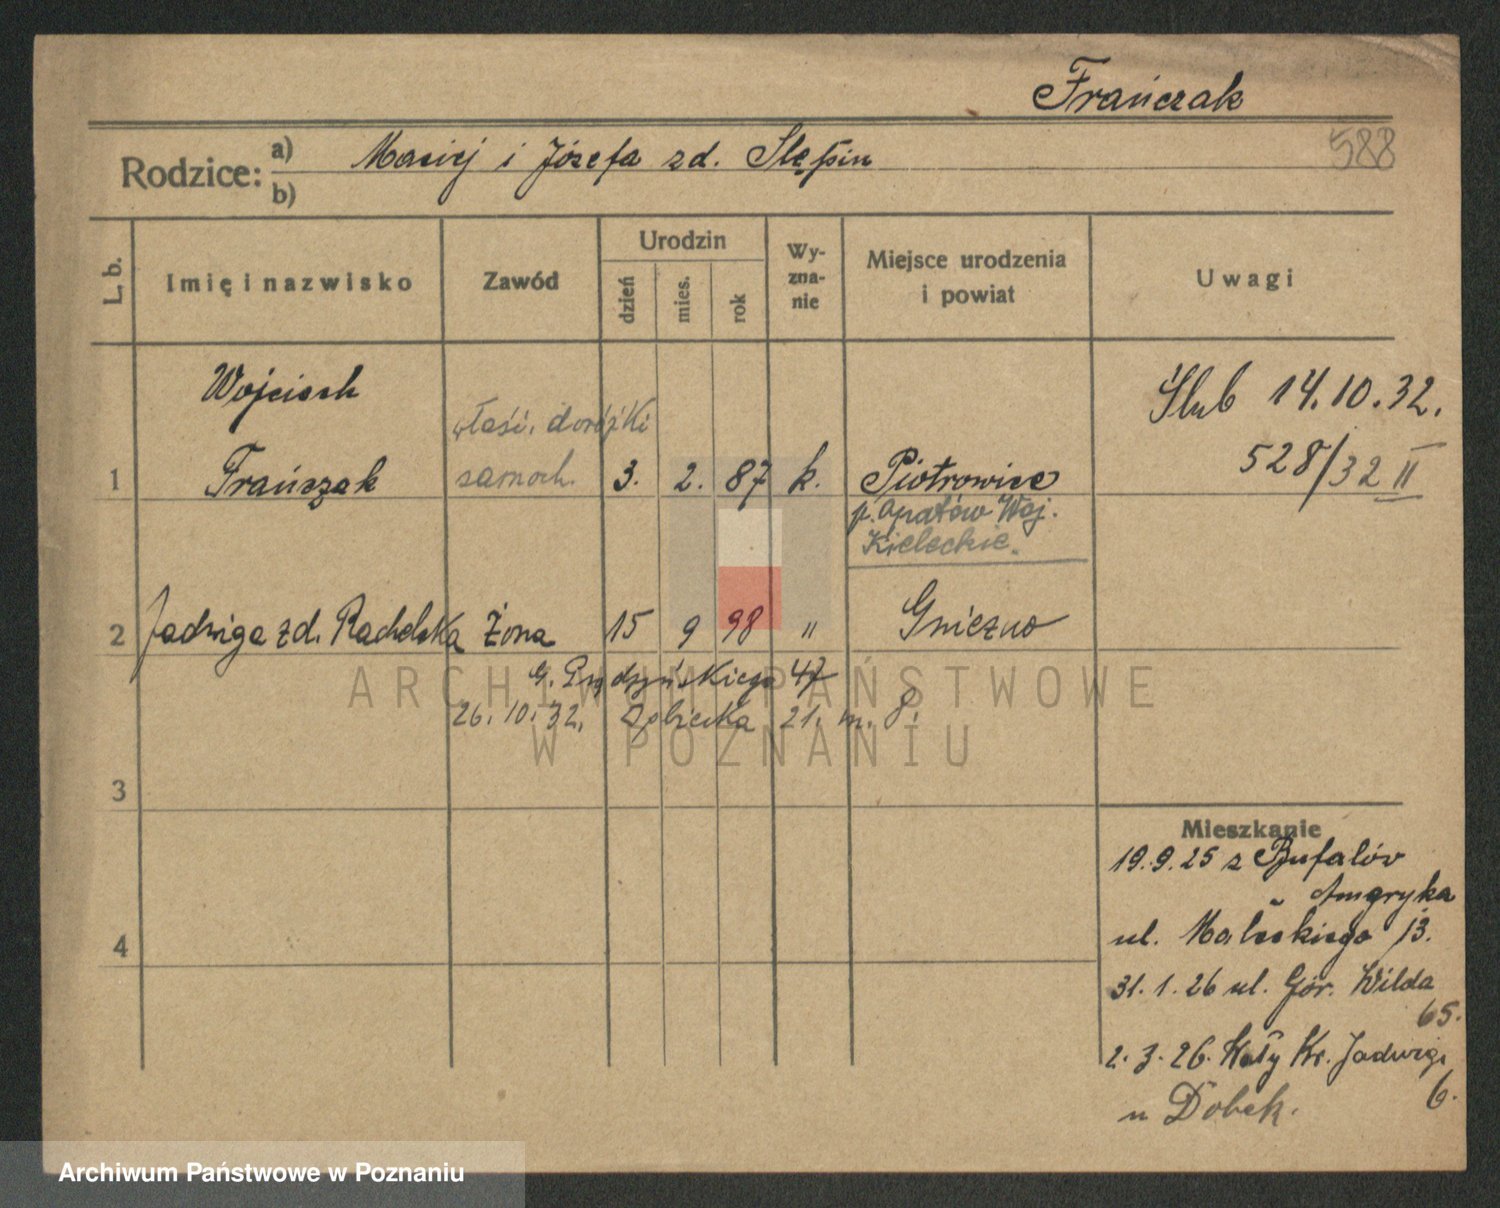 Frańczak
588
Rodzice: a) Maciej i Józefa zd. Stępin
b)
L. b.
Imię i nazwisko
Zawód
Urodzin
dzień
mies.
rok
Wy-
zna-
nie
Miejsce urodzenia
i powiat
Uwagi
Wojciech
właśc. dorożki
Ślub 14.10.32.
528/32 II
1 Frańczak samoch. 3. 2. 87 k. Piotrowice
p. Opatów Woj.
Kieleckie.
2 Jadwiga zd. Racholska Żona 15 9 98 " Gniezno
G. Prądzyńskiego 47
26.10.32. 21. m. 8.
3
Mieszkanie
19.9.25 z Bufalów
Ameryka
4
ul. Małeckiego 13.
31.1.26 ul. Gór. Wilda
65.
2.3.26. Kr. Jadwigi
6.
u Dobek.
ARCHIWUM PAŃSTWOWE
W POZNANIU
Archiwum Państwowe w Poznaniu